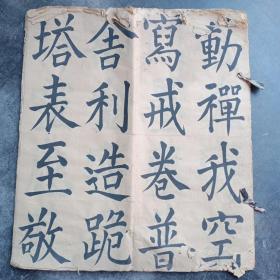 動禪我空
寫戒卷普
舍利造跪
塔表至敬